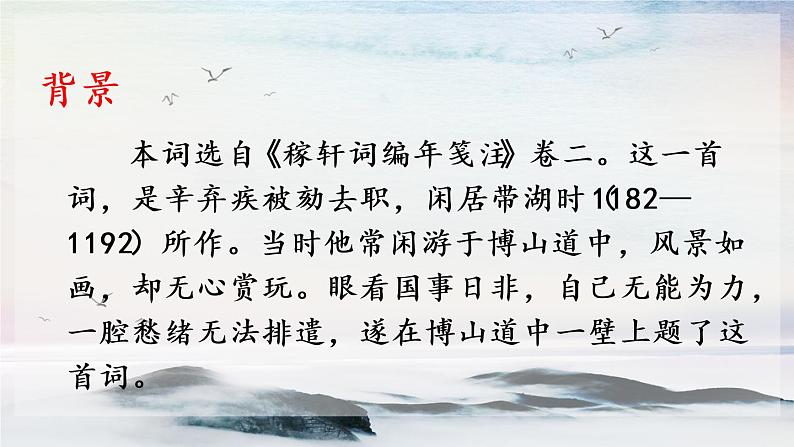 背景
本词选自《稼轩词编年笺注》卷二。这一首
词，是辛弃疾被劾去职，闲居带湖时（1182—
1192）所作。当时他常闲游于博山道中，风景如
画，却无心赏玩。眼看国事日非，自己无能为力，
一腔愁绪无法排遣，遂在博山道中一壁上题了这
首词。